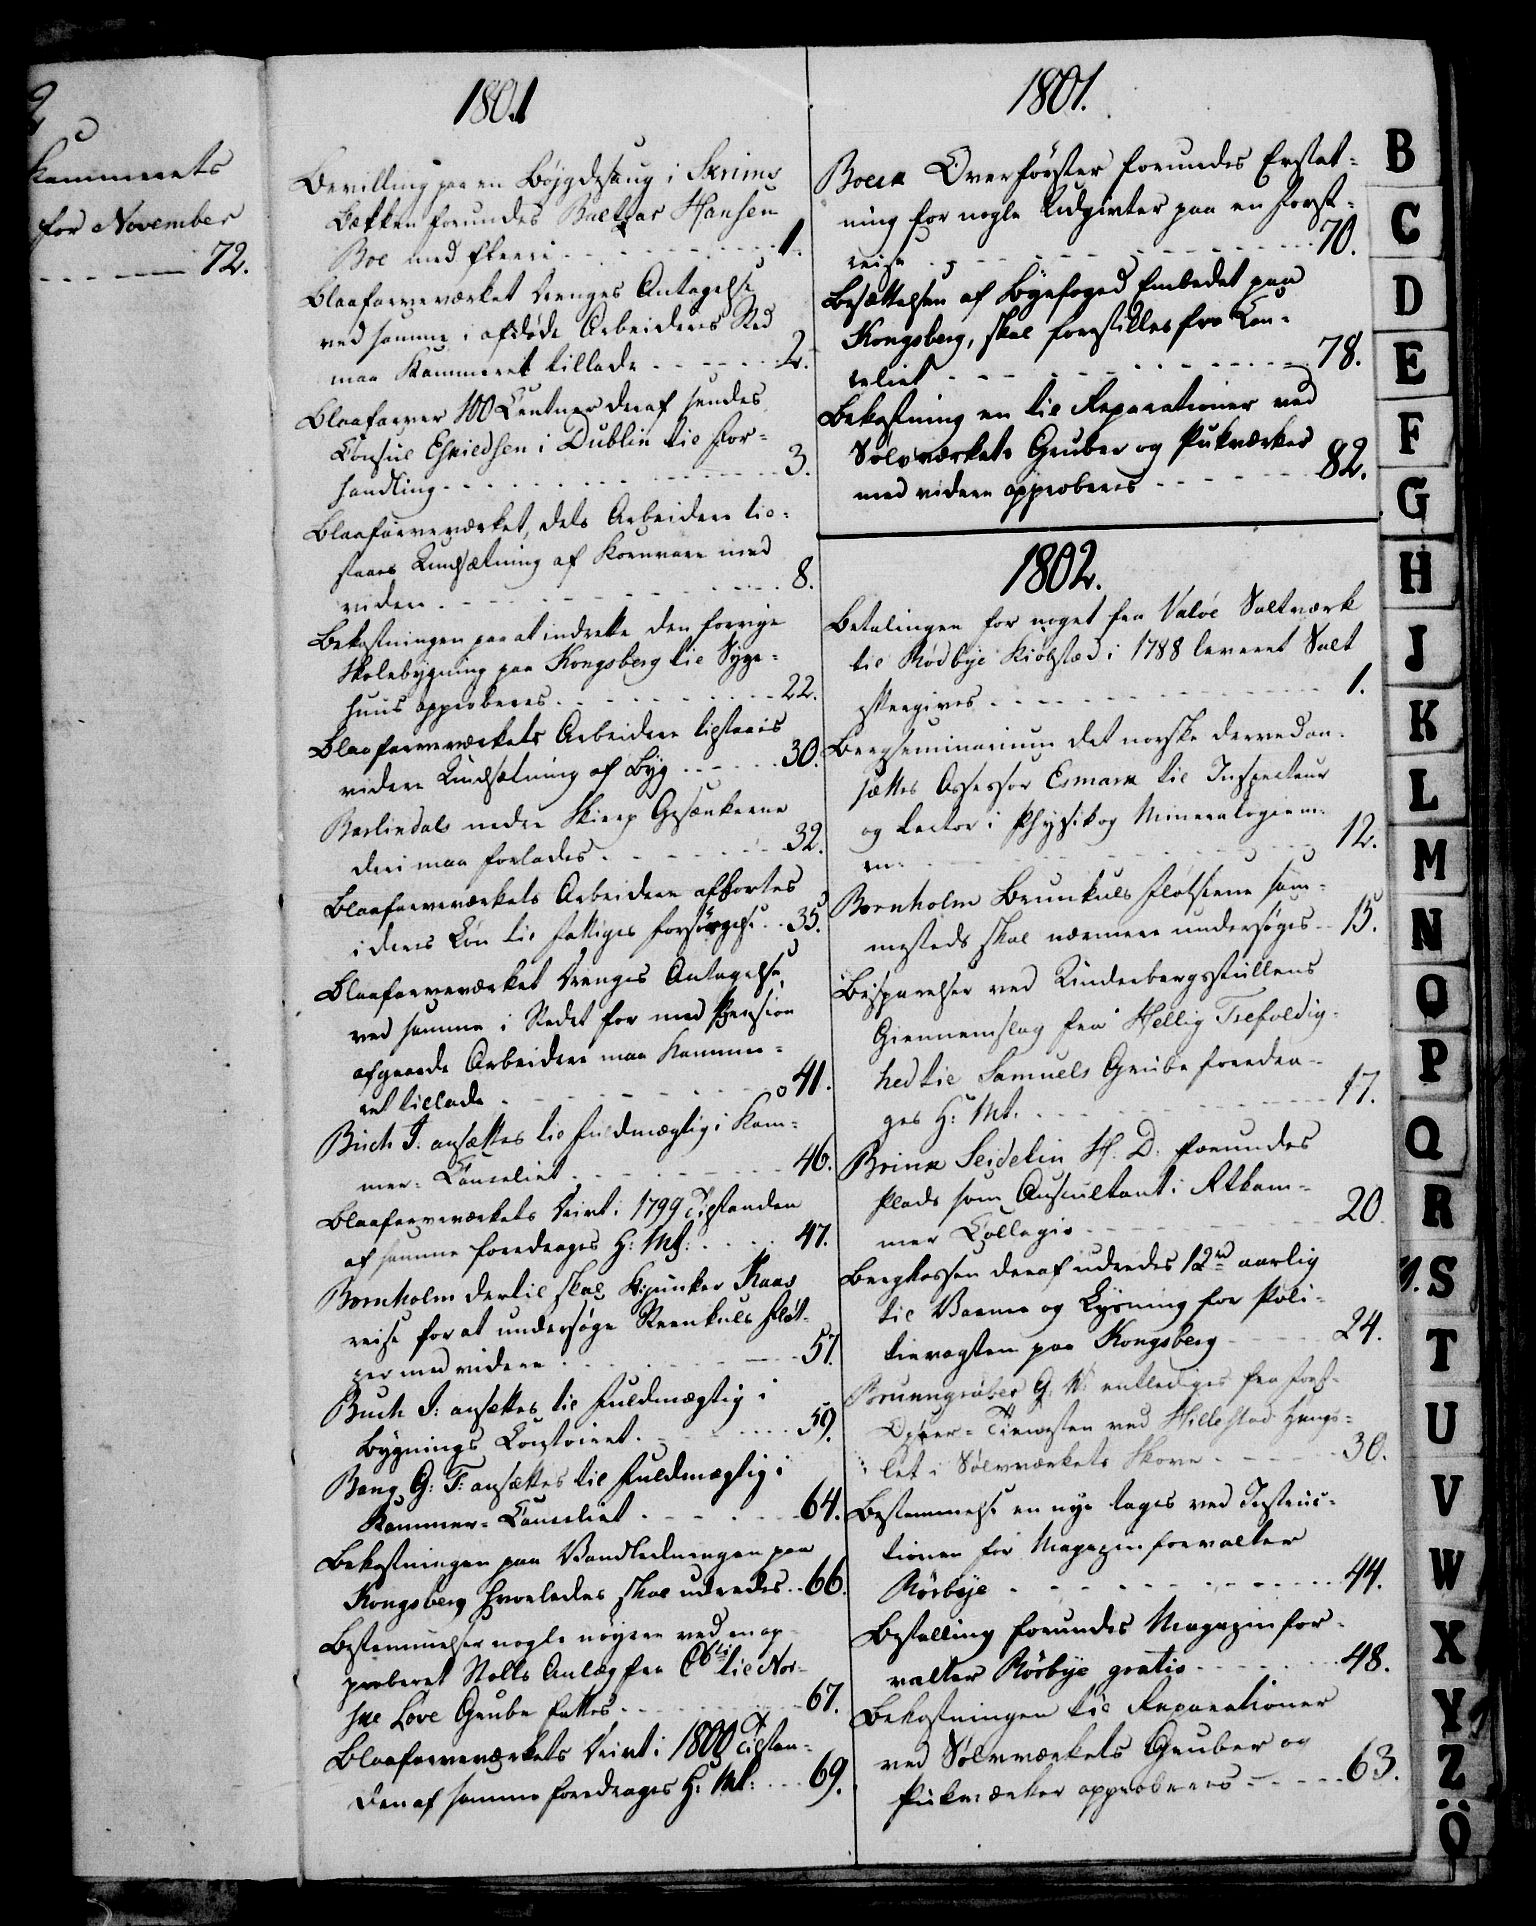 Kammerets
for November
72.
1801
Bevilling paa en Bøjgdesaug i Skrims
Bekken forundes Baltzar Hansen
Boe med fleere 1.
Blaafarveværket Drenges Antagelse
ved samme i afdøde Arbeideres Sted
maa Kammeret tillade 2.
Blaafarver 100 Centner deraf sendes
Consul Eskildsen i Dublin til For-
handling 3.
Blaafarveværket, dets Arbeidere til-
staaes Undsætning af Kornvare med
videre 8.
Bekostningen paa at indrette den forrige
Skolebygning paa Kongsberg til Syge-
huus approberes 22.
Blaafarveværkets Arbeidere tilstaaes
videre Undsætning af Byg 30.
Barlindals nedre Skierp Gesænkerne
deri maa forlades 32.
Blaafarveværkets Arbeidere afkortes
i deres Løn til fattiges forsørgelse 35.
Blaafarveværket Drenges Antagelse,
ved samme i Stedet for med Pension
afgaaede Arbeidere maa Kamme-
ret tillade 41.
Buch J. ansættes til fuldmægtig i Kam-
mer-Canceliet 46.
Blaafarveværkets Drivt i 1799 Tilstanden
af samme foredrages H: Mt: 47.
Bornholm dertil skal Kjunker Kaas
reise for at undersøge Steenkuls Fløt-
zer med videre 57.
Buch J: ansættes til Fuldmægtig i
Bygnings Contoiret 59.
Bang G: F: ansættes til Fuldmægtig i
Kammer-Canceliet 64.
Bekostningen paa Vandledningen paa
Kongsberg hvorledes skal udredes 66.
Bestemmelser nogle nøyere ved en ap-
proberet Stolls Anlæg fra til Nor-
ske Løve Grube fattes 67.
Blaafarveværkets Drivt i 1800 Tilstan-
den af samme foredrages H: Mt: 69.
1801.
Boeck Overførster forundes Erstat-
ning for nogle Udgivter paa en Forst-
reise 70.
Besættelsen af Byefoged Embedet paa
Kongsberg, skal forestilles fra Can-
celiet 78.
Bekostning en til Reparationer ved
Sølvværkets Gruber og Pukværker
med videre approberes 82.
1802.
Betalingen for noget fra Valøe Saltværk
til Rødbye Kiøbsted i 1788 leveret Salt
eftergives 1.
Bergseminarium det norske derved an-
sættes Assessor Esmark til Inspecteur
og Lector i Physik og Mineralogien m.
m. 12.
Bornholm Bruunkuls Fløtserne sam-
mesteds skal nærmere undersøges 15.
Besparelser ved Underbergsstullens
Giennemslag fra Hellig Trefoldig-
hed til Samuels Grube foredra-
ges H: Mt. 17.
Brinck Seidelin H. D. forundes
Plads som Auscultant i Rtkam-
mer Collegio 20.
Bergkassen deraf udredes 12 rd aarlig
til Varme og Lysning for Poli-
tievagten paa Kongsberg 24.
Brunngrüber G. N: entlediges fra Forst-
Opseer-Tienesten ved Hillestad Hengs-
let i Sølvværkets Skove 30.
Bestemmelse en nye tages ved Instruc-
tionen for Magazinforvalter
Rørbye 44.
Bestalling forundes Magazinfor-
valter Rørbye gratis 48.
Bekostningen til Reparationer
ved Sølvværkets Gruber og
Pukværker approberes 63.
B
C
D
E
F
G
H
J
K
L
M
N
O
P
Q
R
S
T
U
V
W
X
Y
Z
Ö